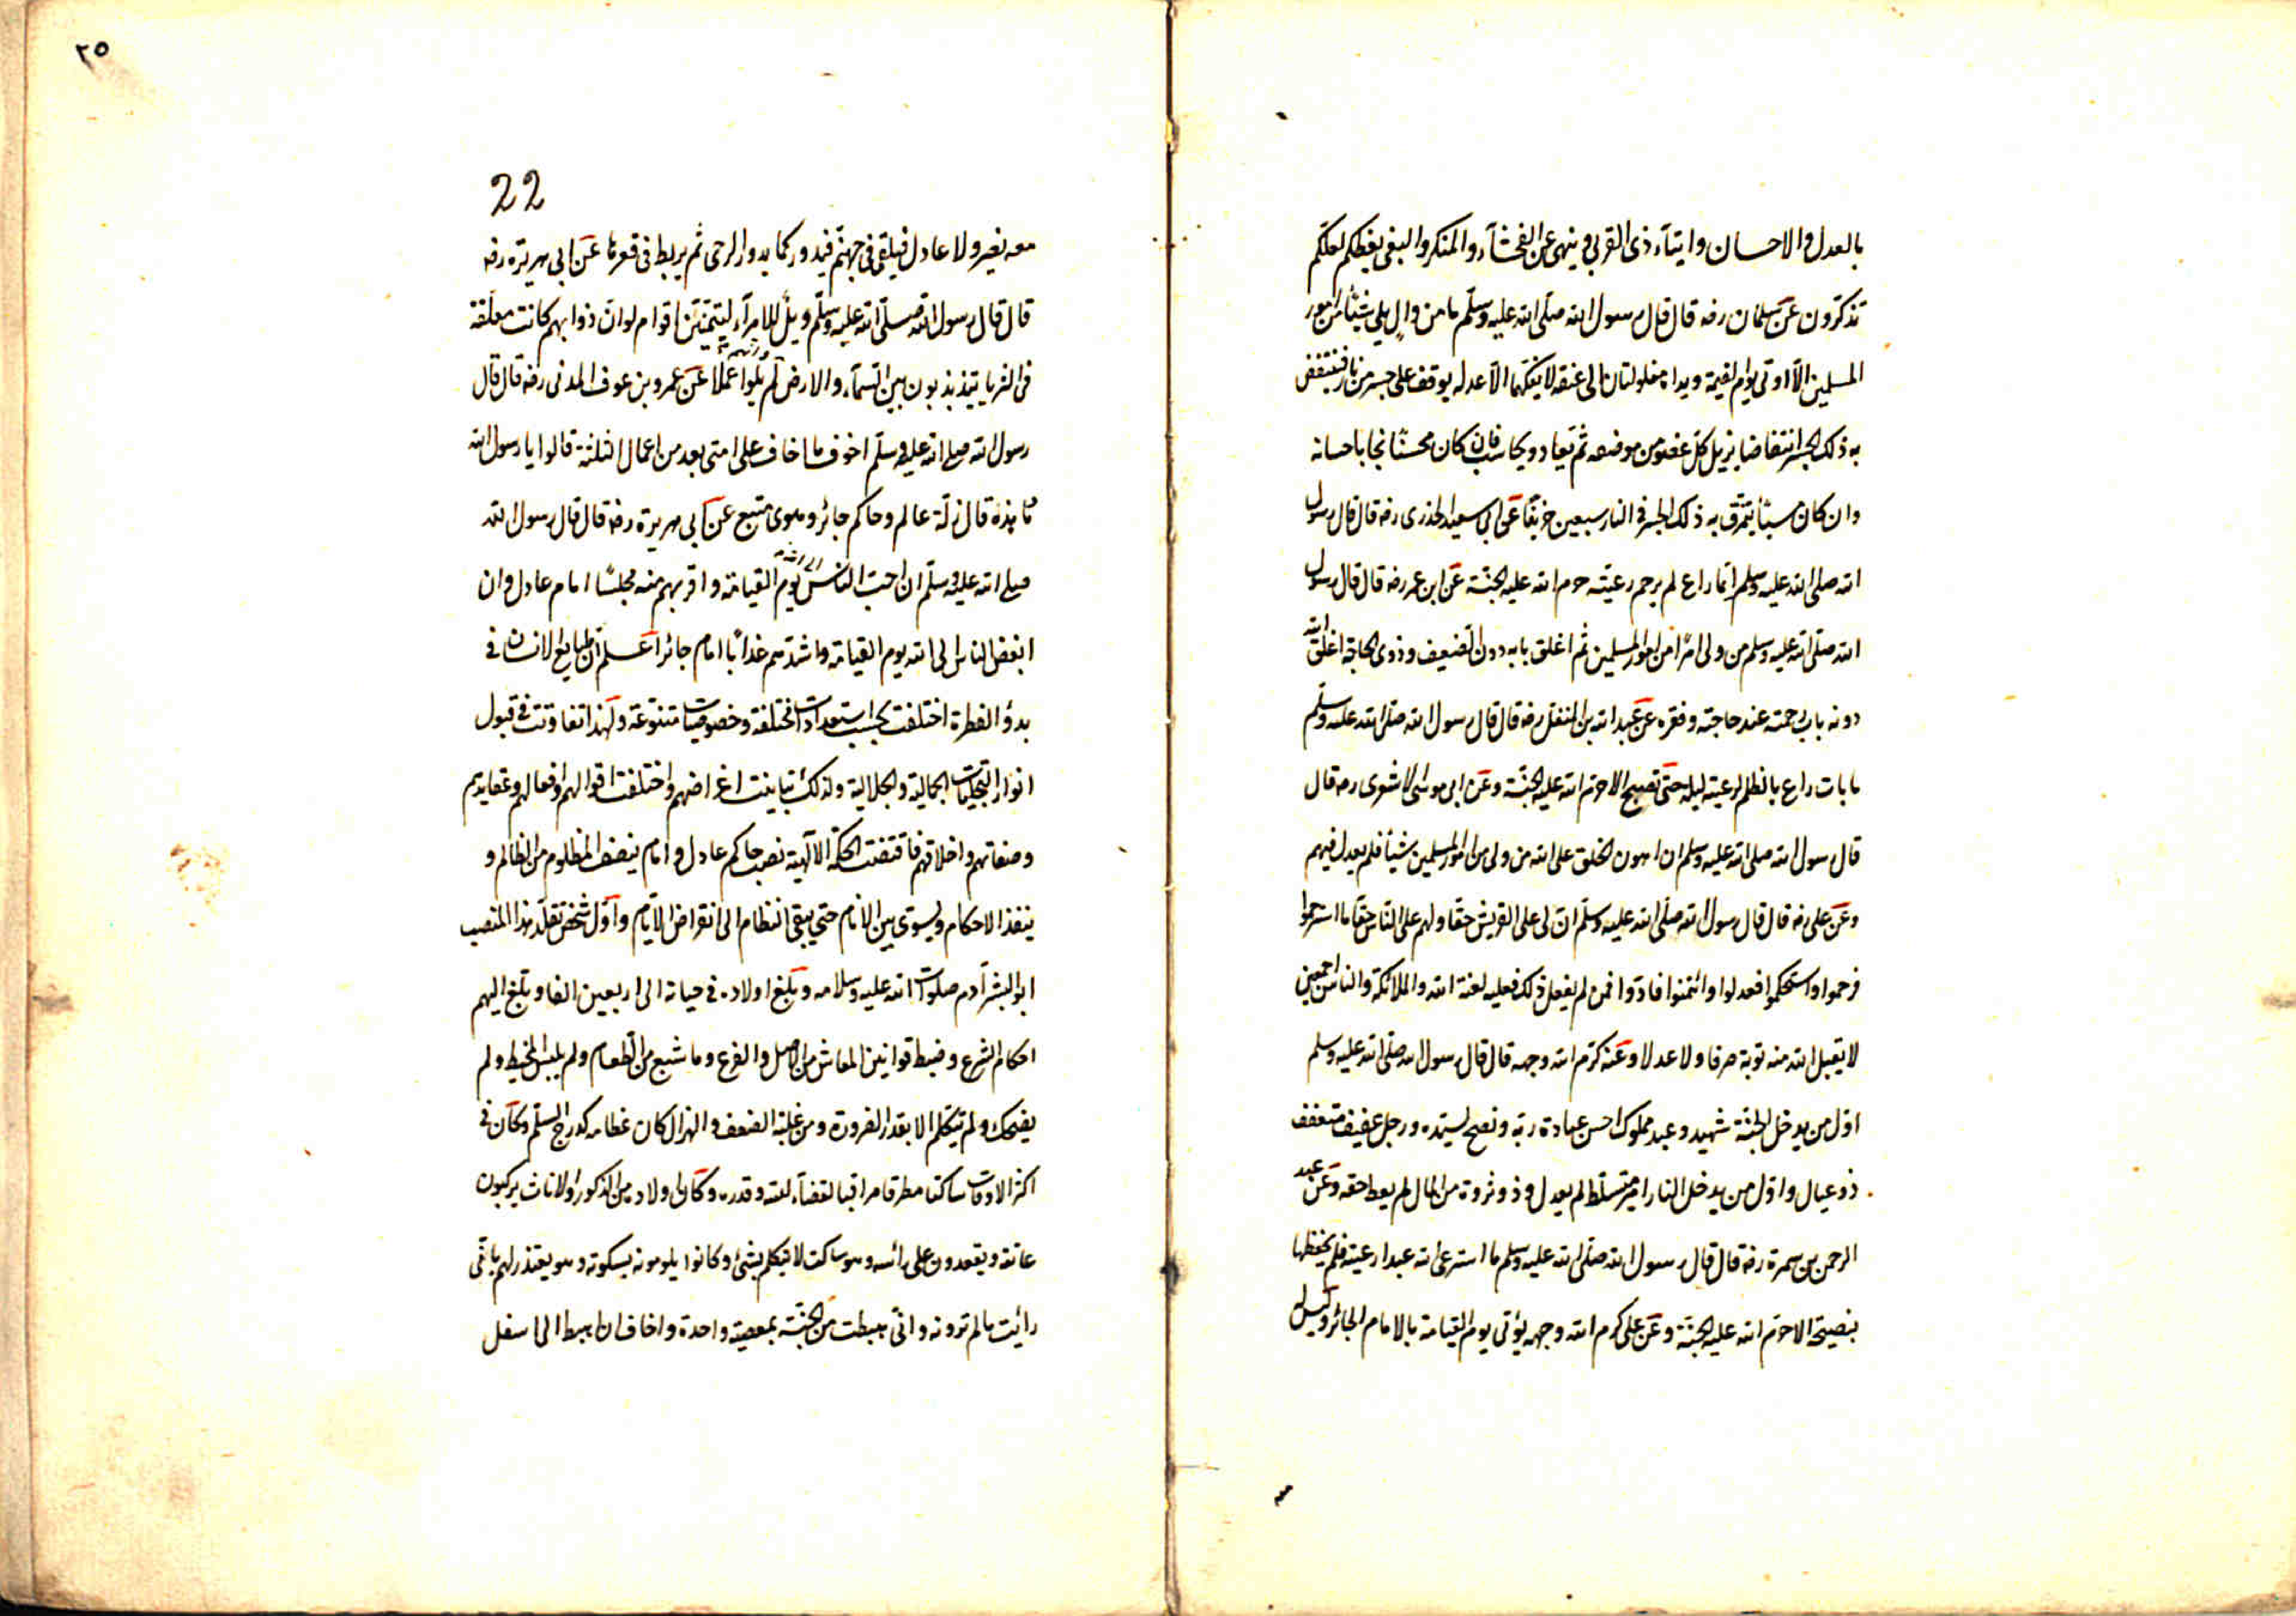 بالعدل والاحسان وايتآء ذى القربى وينهى عن الفحشآء والمنكر والبغى يعظكم لعلّكم
تذكّرون عن سلمان رضه قال قال رسول الله صلّى الله عليه وسلّم ما من والٍ يلى شيئًا من امور
المسلمين الّا اوتى يوم القيمة ويداه مغلولتان الى عنقه لا يفكّهما الّا عدله يوقف على جسر من نار فينتفض
به ذلك الجسر انتفاضا يزيل كلّ عضو من موضعه ثم يعاد ويحاسب فان كان محسنًا نجا باحسانه
وان كان مسيئًا يتخرّق به ذلك الجسر فى النار سبعين خريفًا عن ابى سعيد الخدرى رضه قال قال رسول
الله صلى الله عليه وسلم ايّما راع لم يرحم رعيّته حرم الله عليه الجنّة عن ابن عمر رضه قال قال رسول
الله صلّى الله عليه وسلم من ولى امرًا من امور المسلمين ثم اغلق بابه دون الضعيف وذوى الحاجة اغلق الله
دونه باب رحمته عند حاجته وفقره عن عبد الله بن المغفل رضه قال قال رسول الله صلّى الله عليه وسلّم
ما بات راع بالظلم لرعيته ليلة حتّى تصبح الا حرّم الله عليه الجنّة وعن ابى موسى الاشعرى رضه قال
قال رسول الله صلى الله عليه وسلم ان اهون الخلق على الله من ولى من امور المسلمين شيئًا فلم يعدل فيهم
وعن على رضه قال قال رسول الله صلّى الله عليه وسلّم ان لى على القريش حقا ولهم على النّاس حقّا ما استرحموا
فرحموا واستحكموا فعدلوا وائتمنوا فادّوا فمن لم يفعل ذلك فعليه لعنة الله والملائكة والناس اجمعين
لا يقبل الله منه توبة صرفا ولا عدلا وعنه كرّم الله وجهه قال قال رسول الله صلّى الله عليه وسلم
اوّل من يدخل الجنّة شهيد وعبد مملوك احسن عبادة ربّه ونصح لسيّده ورجل عفيف متعفف
ذو عيال واوّل من يدخل النار امير متسلّط لم يعدل وذو ثروة من المال لم يعط حقه وعن عبد
الرحمن بن سمرة رضه قال قال رسول الله صلّى الله عليه وسلم ما استرعى الله عبدا رعيته فلم يحفظها
بنصيحة الا حرّم الله عليه الجنّة وعن على كرم الله وجهه يؤتى يوم القيامة بالامام الجائر وليس
٢٥
22
معه نصير ولا عادل فيلقى فى جهنّم فيدور كما يدور الرحى ثم يربط فى قعرها عن ابى هريرة رضه
قال قال رسول الله صلّى الله عليه وسلّم ويلٌ للامرآء ليتمنّينّ اقوام لو انّ ذوائبهم كانت معلّقة
فى الثريا يتذبذبون بين السّمآء والارض لم يلوا عملا عن عمرو بن عوف المدنى رضه قال قال
رسول الله صلى الله عليه وسلّم اخوف ما اخاف على امتى بعد من اعمال الثلثة قالوا يا رسول الله
ما هذه قال زلّة عالم وحاكم جائر وهوى متبع عن ابى هريرة رضه قال قال رسول الله
صلى الله عليه وسلّم ان احبّ الناس يوم القيامة واقربهم منه مجلسًا امام عادل وان
ابغض الناس الى الله يوم القيامة واشدّهم عذابًا امام جائر اعلم ان طبايع الانسان فى
بدؤ الفطرة اختلفت بحسب استعدادات مختلفة وخصوصيّات متنوّعة ولهذا تفاوتت فى قبول
انوار التجلّيات الجمالية والجلالية ولذلك تباينت اغراضهم واختلفت اقوالهم وافعالهم وعقايدهم
وصفاتهم واخلاقهم فاقتضت الحكمة الآلهية نصب حاكم عادل وامام ينصف المظلوم من الظالم و
ينفذ الاحكام ويسوّى بين الانام حتى يبقى انتظام الى انقراض الايّام واوّل شخص تقلّد هذا المنصب
ابو البشر آدم صلوات الله عليه وسلامه وبلغ اولاده فى حياته الى اربعين الفا وبلّغ اليهم
احكام الشرع وضبط قوانين المعاش من الاصل والفرع وما شبع من الطعام ولم يلبس المخيط ولم
يضحك ولم يتكلّم الا بقدر الضرورة ومن غلبة الضعف والهزال كان عظامه كدرج السلّم وكان فى
اكثر الاوقات ساكتا مطرقا مراقبا لقضآء الله وقدره وكان اولاده من الذكور والاناث يركبون
عاتقه ويقعدون على رأسه وهو ساكت لا يتكلم بشئ وكانوا يلومونه بسكوته وهو يعتذر لهم بانّى
رأيت ما لم تروه وانّى هبطت من الجنّة بمعصية واحدة واخاف ان اهبط الى اسفل